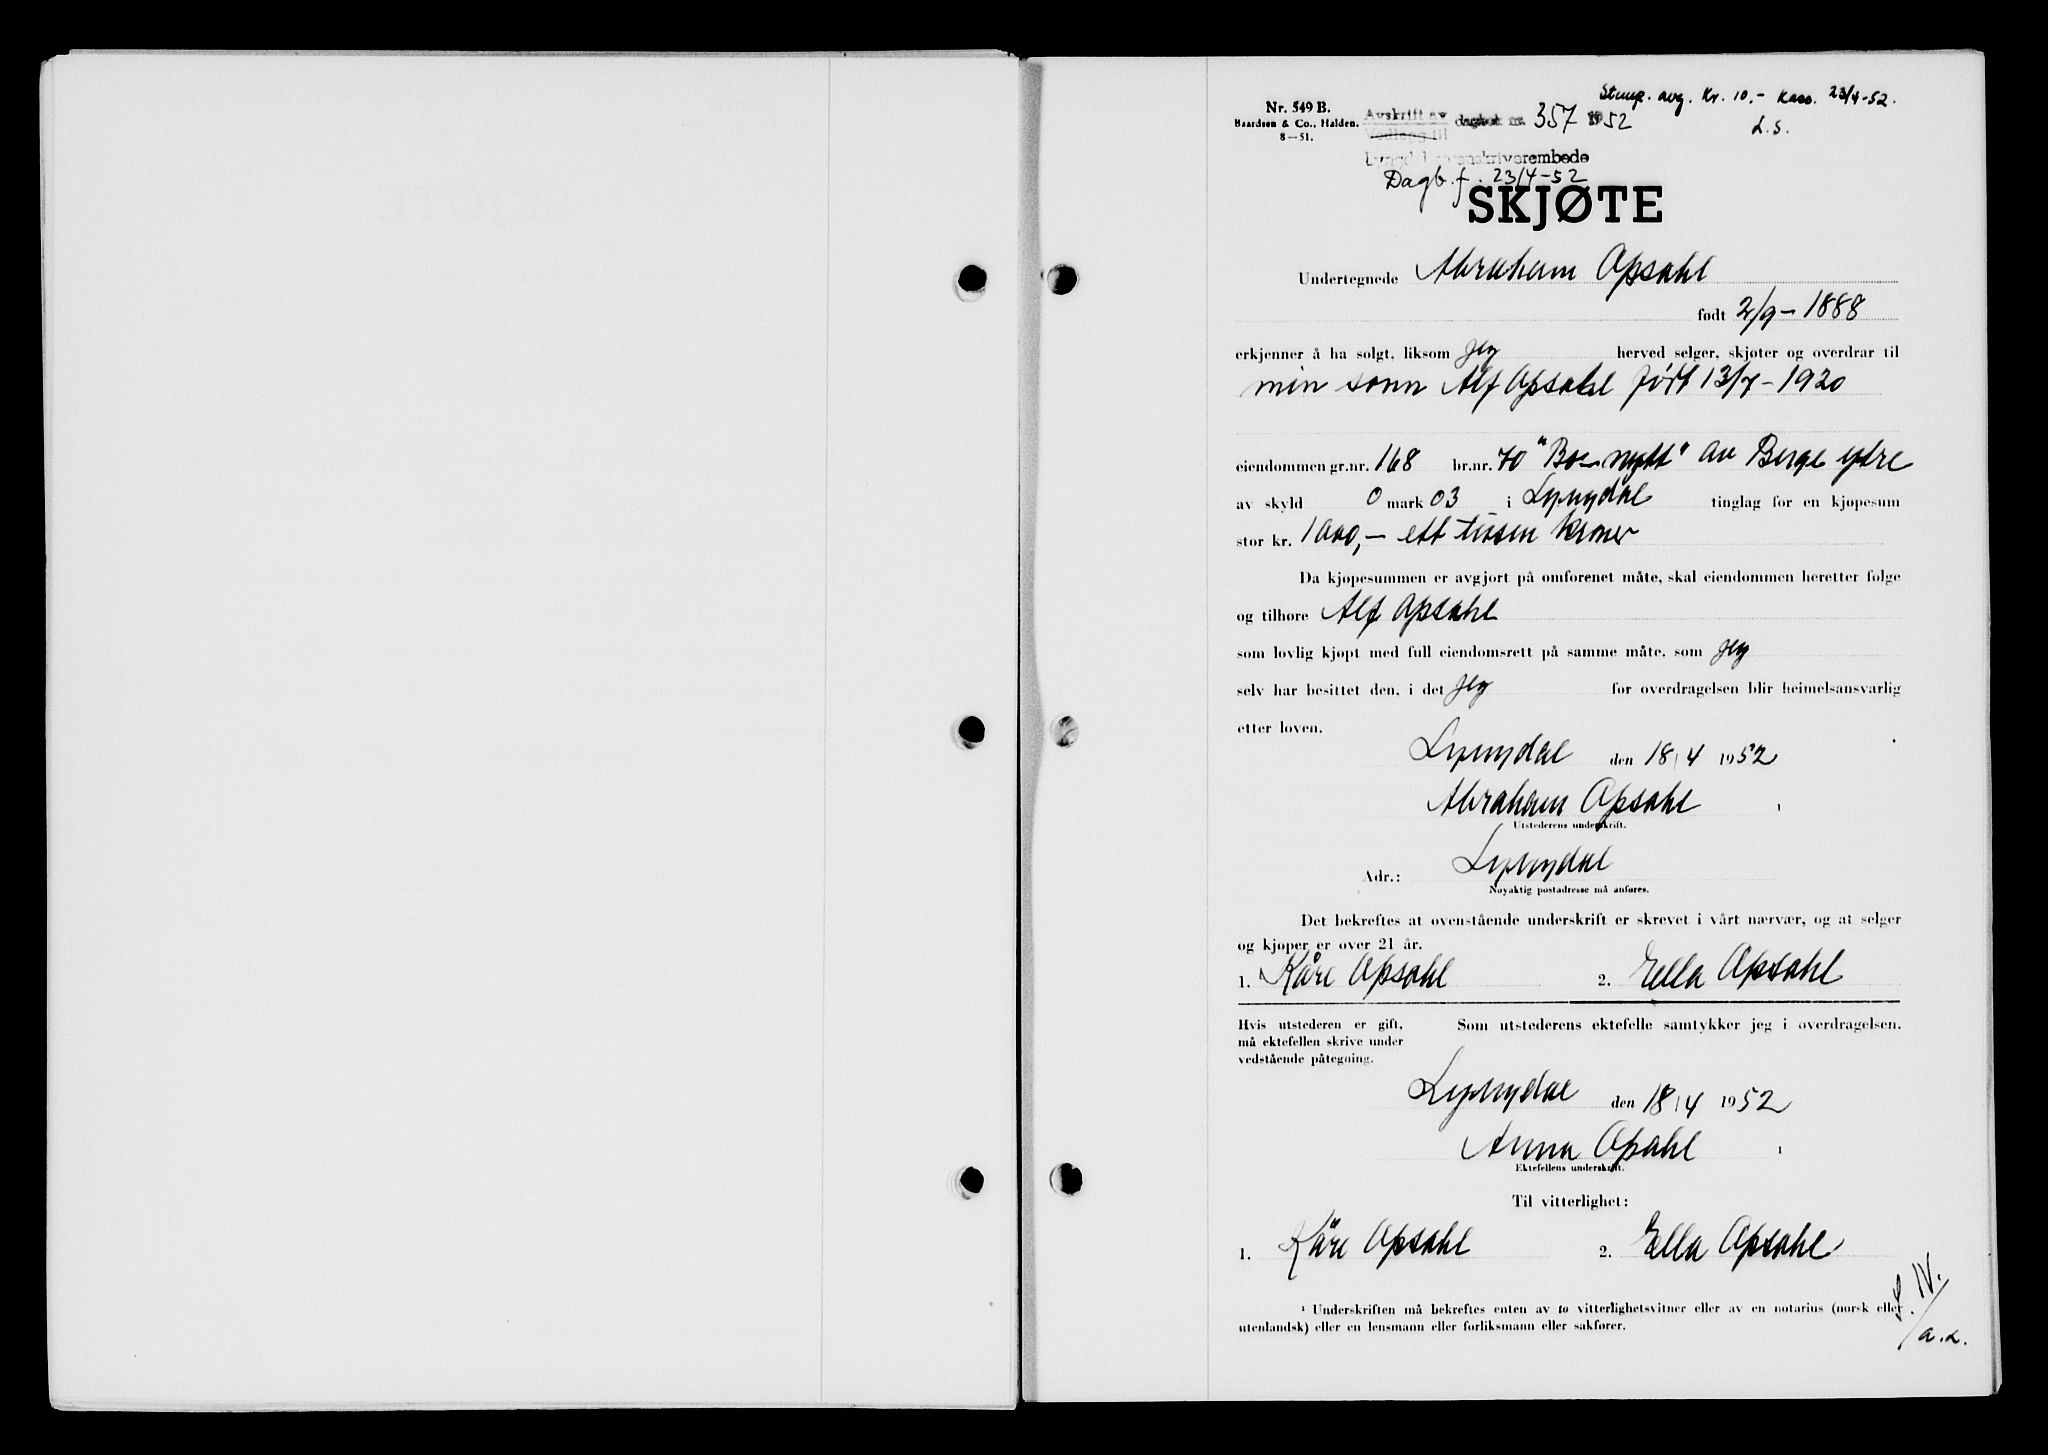 Stemp. avg. Kr. 10.- Kass. 23/4-52.
L.S.
Nr. 549 B.
Baardsen & Co., Halden.
8—51.
Avskrift av
Vedlegg til
dagbok nr. 357 1952
sorenskriverembede
Dagb.f. 23/4-52
SKJØTE
Undertegnede Abraham Opsahl
født 2/9-1888
erkjenner å ha solgt, liksom jeg herved selger, skjøter og overdrar til
min sønn Alf Opsahl født 13/7-1920
eiendommen gr.nr. 168 br.nr. 70 "Bo-nytt" av Berge ytre
av skyld 0 mark 03 i Lyngdal tinglag for en kjøpesum
stor kr. 1000,- ett tusen kroner
Da kjøpesummen er avgjort på omforenet måte, skal eiendommen heretter følge
og tilhøre Alf Opsahl
som lovlig kjøpt med full eiendomsrett på samme måte, som jeg
selv har besittet den, i det jeg for overdragelsen blir heimelsansvarlig
etter loven.
Lyngdal den 18/4 1952
Abraham Opsahl ¹
Utstederens underskrift.
Adr.: Lyngdal
Nøyaktig postadresse må anføres.
Det bekreftes at ovenstående underskrift er skrevet i vårt nærvær, og at selger
og kjøper er over 21 år.
1. Kåre Opsahl 2. Ella Opsahl
Hvis utstederen er gift,
må ektefellen skrive under
vedstående påtegning.
Som utstederens ektefelle samtykker jeg i overdragelsen.
Lyngdal den 18/4 1952
Anna Opsahl ¹
Ektefellens underskrift.
Til vitterlighet:
1. Kåre Opsahl 2. Ella Opsahl
¹ Underskriften må bekreftes enten av to vitterlighetsvitner eller av en notarius (norsk eller
utenlandsk) eller en lensmann eller forliksmann eller sakfører.